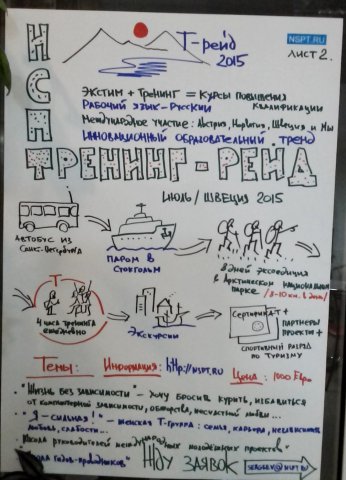 ИСПТ
Т-рейд
2015
NSPT.RU
ЛИСТ 2.
ЭКСТИМ + ТРЕНИНГ = КУРСЫ ПОВЫШЕНИЯ
КВАЛИФИКАЦИИ
РАБОЧИЙ ЯЗЫК - РУССКИЙ
МЕЖДУНАРОДНОЕ УЧАСТИЕ: Австрия, Норвегия, Швеция и Мы
ИННОВАЦИОННЫЙ ОБРАЗОВАТЕЛЬНЫЙ ТРЕНД
ТРЕНИНГ - РЕЙД
ИЮЛЬ / ШВЕЦИЯ 2015
АВТОБУС ИЗ
Санкт-Петербурга
ПАРОМ В
СТОКГОЛЬМ
8 дней экспедиция
в Арктическом национальном
парке /8-10 км. в день/
Т
4 часа тренинга
ежедневно
Экскурсии
Сертификат Т +
ПАРТНЕРЫ
ПРОЕКТЫ +
СПОРТИВНЫЙ РАЗРЯД
ПО ТУРИЗМУ
Темы: Информация: http://NSPT.RU Цена: 1000 Евро
"Жизнь БЕЗ ЗАВИСИМОСТИ" - Хочу бросить курить, избавиться
от компьютерной зависимости, обжорства, несчастной любви...
"Я - сильная!" - женская Т-группа: семья, карьера, независимость
любовь, слабости...
Школа руководителей международных молодёжных проектов"
Школа гидов-проводников"
ЖДУ ЗАЯВОК